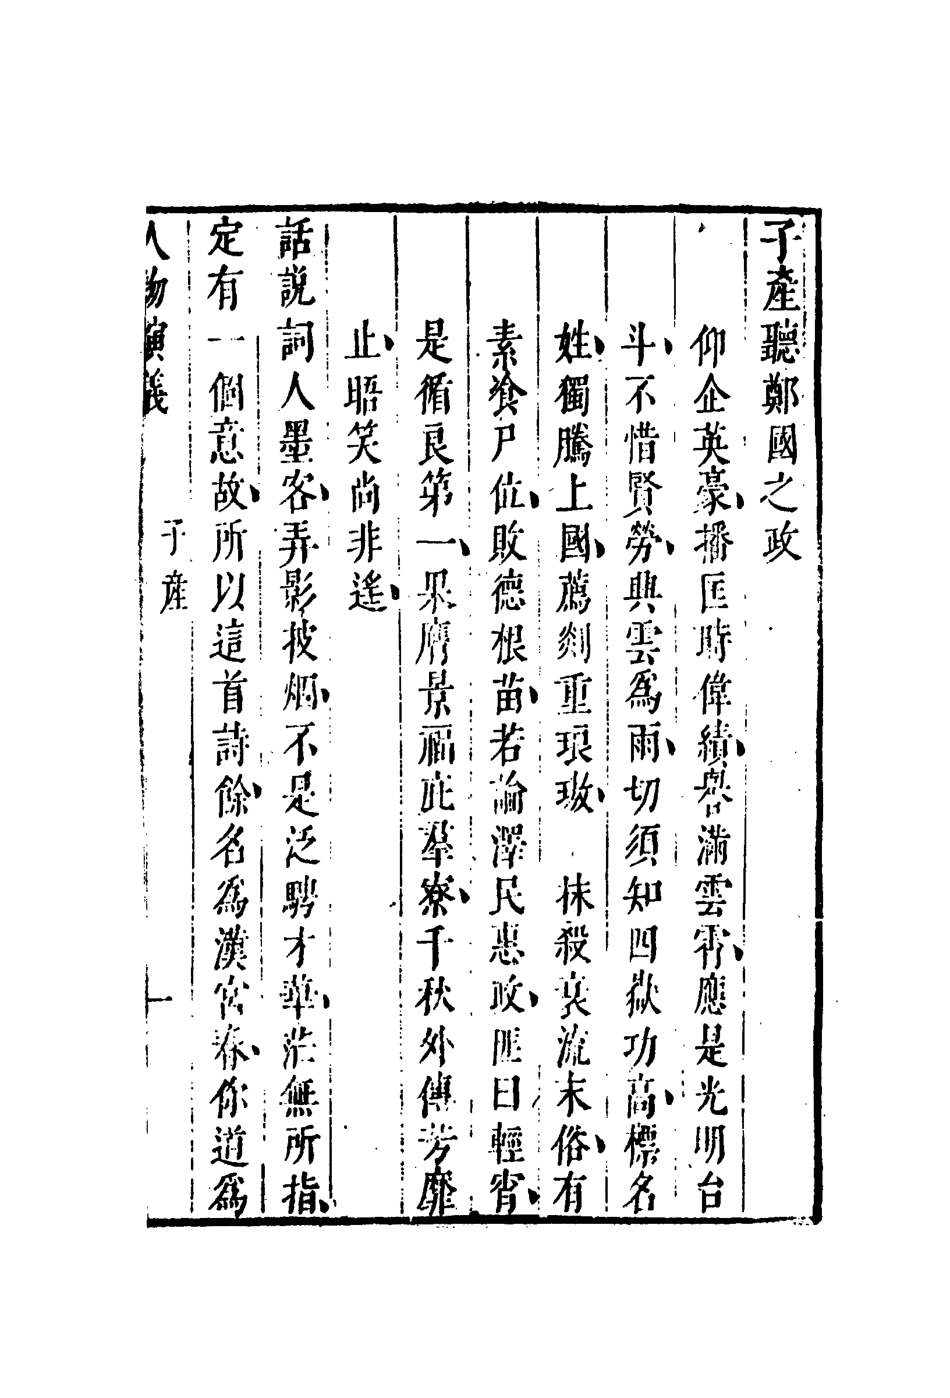 子產聽鄭國之政
仰企英豪、播匡時偉績、譽滿雲霄、應是光明台
斗、不惜賢勞、興雲爲雨、切須知四嶽功高、標名
姓、獨騰上國、薦剡重琅璈、 抹殺衰流末俗、有
素飡尸位、敗德根苗、若論澤民惠政、匪曰輕宵、
是循良第一、果膺景福庇羣寮、千秋外傳芳靡
止、晤笑尚非遙、
話說詞人墨客、弄影披烟、不是泛騁才華、茫無所指、
定有一個意故、所以這首詩餘、名爲漢宮春、你道爲
人物演義 子產 一